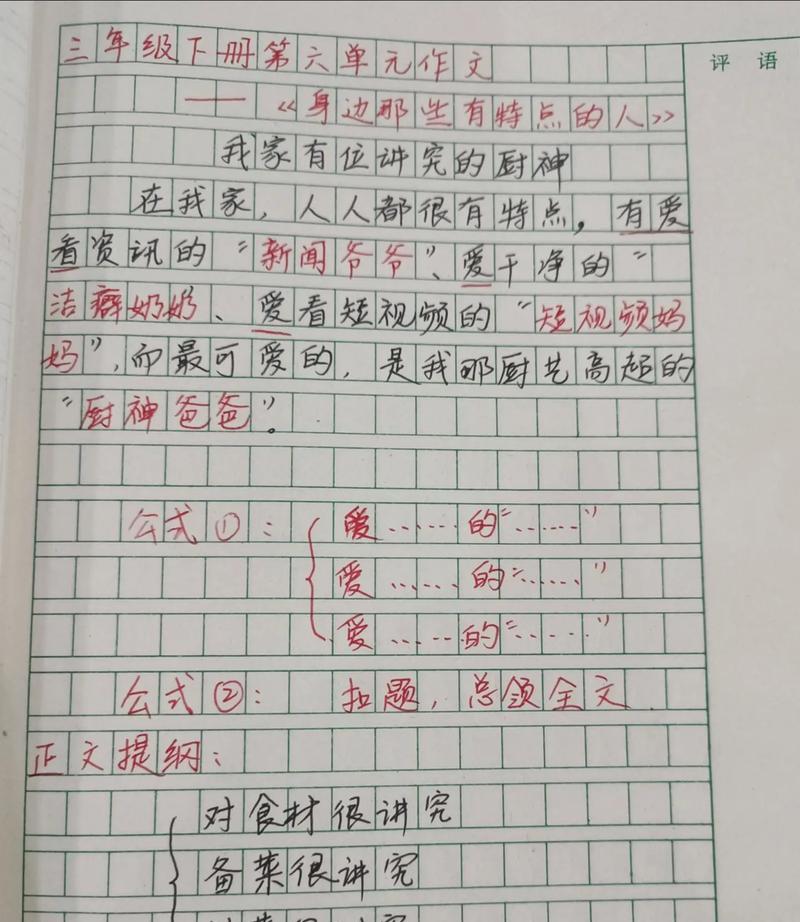 三年级下册第六单元作文
评语
——《身边那些有特点的人》
我家有位讲究的厨神
在我家，人人都很有特点，有爱
看资讯的“新闻爷爷”、爱干净的“
洁癖奶奶、爱看短视频的“短视频妈
妈”，而最可爱的，是我那厨艺高超的
“厨神爸爸”。
公式①：爱……的“……”
爱……的“……”
爱……的“……”
公式②：扣题，总领全文.
正文提纲：
对食材很讲究
备菜很讲究